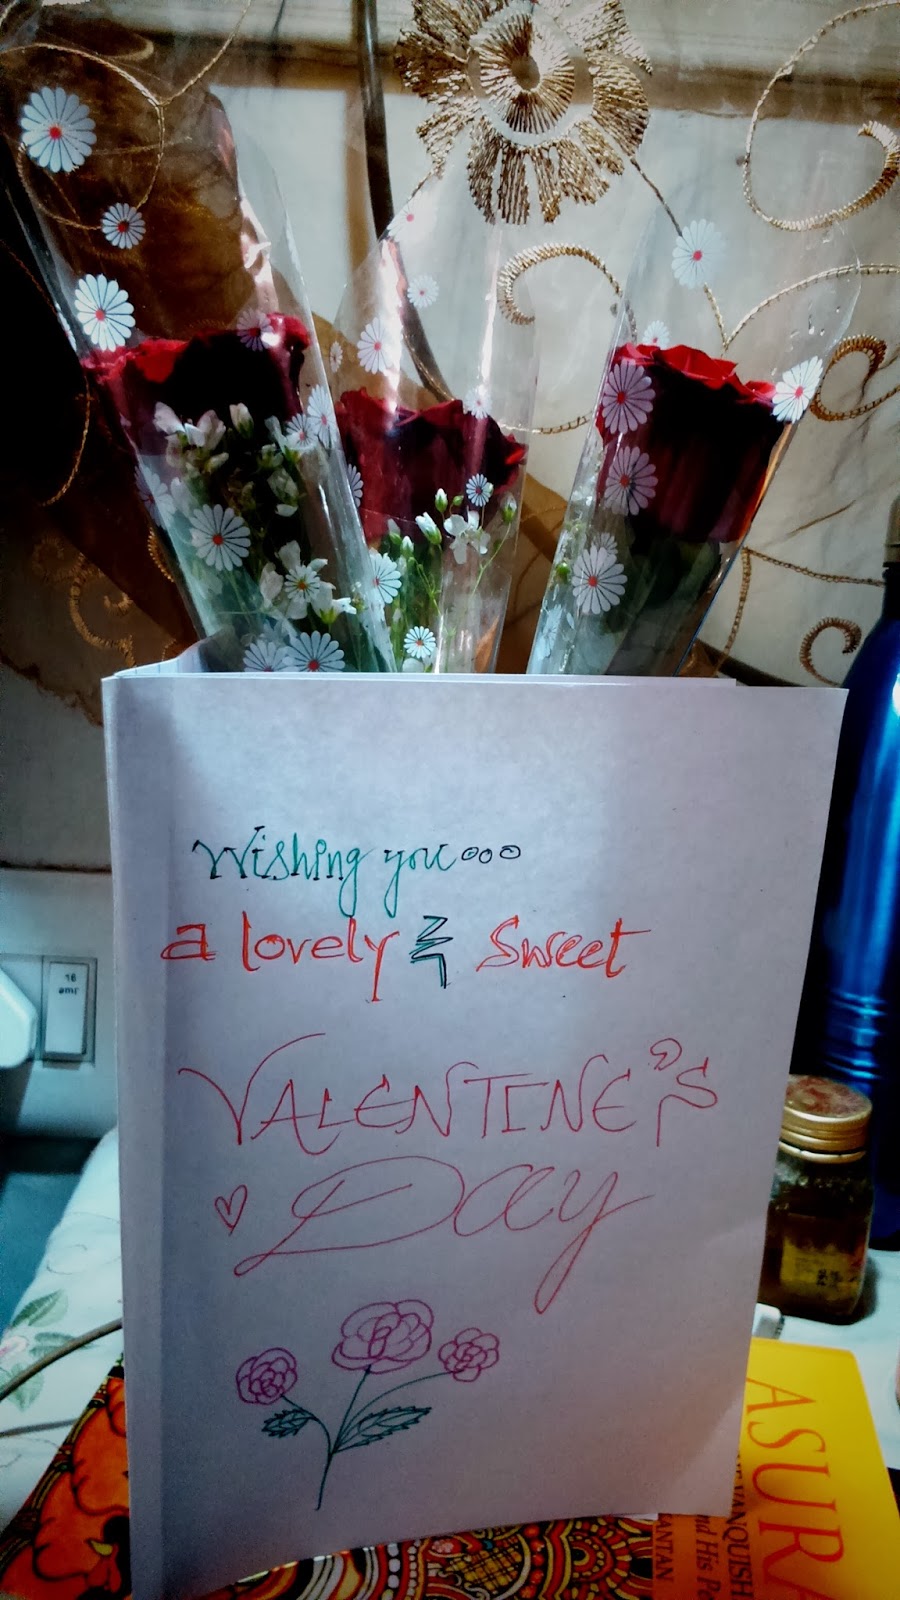 Wishing you...
a lovely & Sweet
VALENTINE'S
Day
16
amr
ASURA
VANQUISH
and His Pe